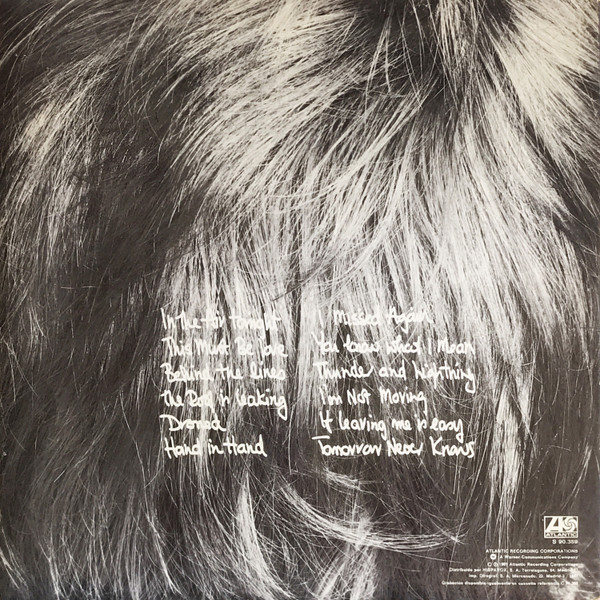 In the Air Tonight
This Must Be Love
Behind the lines
the Roof is leaking
Droned
Hand in Hand
I Missed Again
You Know What I Mean
Thunder and Lightning
I'm Not Moving
If leaving me is easy
Tomorrow Never Knows
ATLANTIC
S 90.359
ATLANTIC RECORDING CORPORATIONS
A Warner Communications Company
Atlantic Recording Corporation